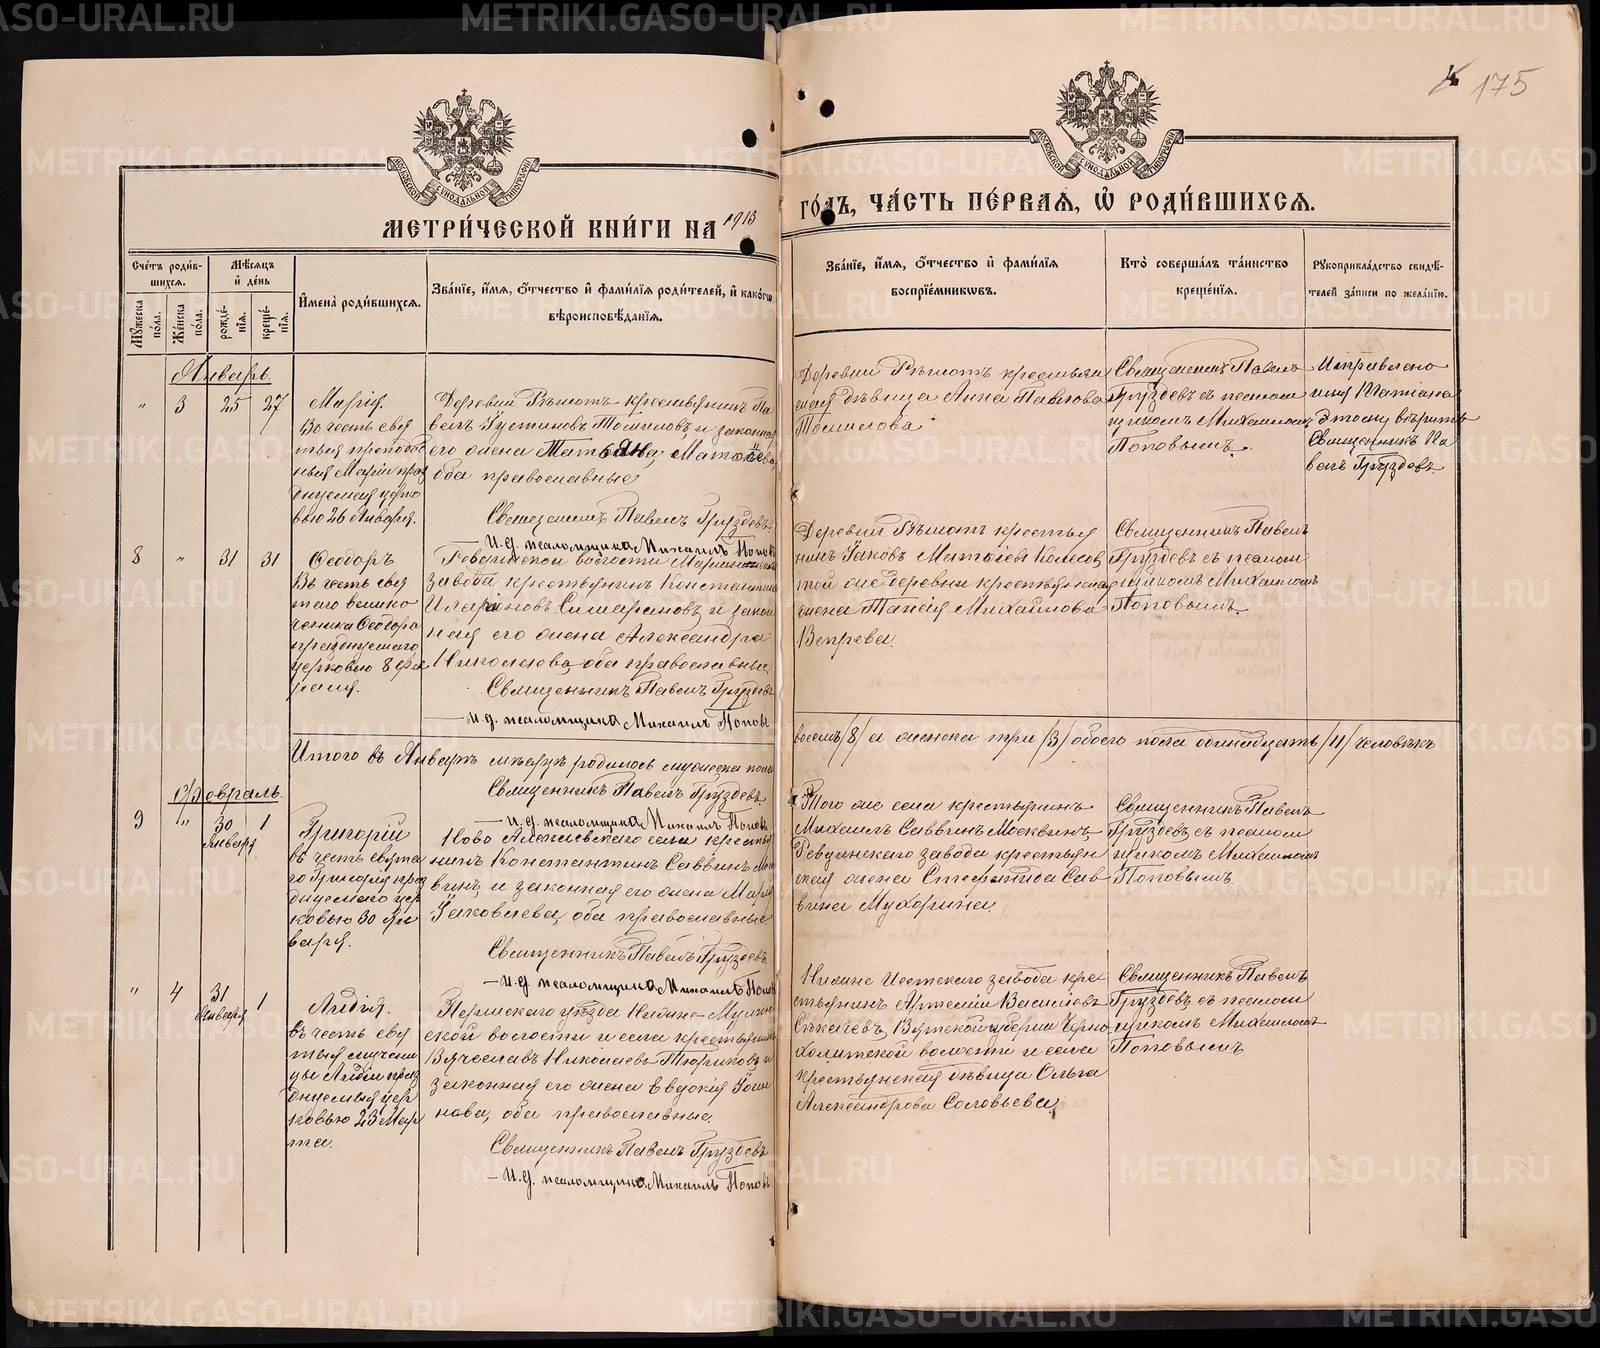 175
МОСКОВСКОЙ СУНОДАЛЬНОЙ ТИПОГРАФІИ
МОСКОВСКОЙ СУНОДАЛЬНОЙ ТИПОГРАФІИ
МЕТРИ́ЧЕСКОЙ КНИ́ГИ НА 1913
ГО́ДЪ, ЧА́СТЬ ПЕ́РВАѦ, Ѡ҆ РОДИ́ВШИХСѦ.
Сче́тъ роди́в-
шихсѧ.
Мꙋ́жеска по́ла.
Же́нска по́ла.
Мѣ́сѧцъ
и҆ де́нь
рожде́-
нїѧ.
креще́-
нїѧ.
И҆мена̀ роди́вшихсѧ.
Зва́нїе, и҆́мѧ, ѻ҆́тчество и҆ фами́лїѧ роди́телей, и҆ како́гѡ
вѣроисповѣ́данїѧ.
Зва́нїе, и҆́мѧ, ѻ҆́тчество и҆ фами́лїѧ
воспрїе́мникѡвъ.
Кто̀ соверша́лъ та́инство
креще́нїѧ.
Рꙋкоприкла́дство свидѣ́-
телей за́писи по жела́нїю.
Январь.
" 3 25 27
Марія.
Въ честь свя
тыя преподоб
ныя Маріи праз
днуемыя церко
вью 26 Января.
Деревни Рѣшотъ крестьянинъ Па
велъ Густиновъ Томиловъ, и законная
его жена Татьяна Матвѣева,
оба православные
Священникъ Павелъ Груздевъ
— И.д. псаломщика Михаилъ Поповъ
Деревни Рѣшотъ крестьян
ская дѣвица Анна Павлова
Томилова
Священникъ Павелъ
Груздевъ съ псалом
щикомъ Михаиломъ
Поповымъ.
Исправлено
имя Татіана
этому вѣрить
Священникъ Па
велъ Груздевъ
8 " 31 31
Ѳеодоръ
Въ честь свя
таго велико
ченика Ѳеодора
празднуемаго
церковью 8 фев
раля.
Ревдинской волости Маріинскаго
завода крестьянинъ Константинъ
Иларіоновъ и закон
ная его жена Александра
Николаева, оба православные.
Священникъ Павелъ Груздевъ
— И.д. псаломщика Михаилъ Поповъ
Деревни Рѣшотъ крестья
нинъ Іаковъ Матѳіевъ Колесов
той же деревни крестьянская
жена Таисія Михайлова
Вепрева.
Священникъ Павелъ
Груздевъ съ псалом
щикомъ Михаиломъ
Поповымъ.
Итого въ Январѣ мѣсяцѣ родилось мужеска пола
восемь /8/ а женска три /3/ обоего пола одинадцать /11/ человѣкъ
Священникъ Павелъ Груздевъ
— И.д. псаломщика Михаилъ Поповъ
Февраль.
9 " 30 Января 1
Григорій
въ честь свята
го Григорія праз
днуемаго цер
ковью 30 Ян
варя.
Ново Алексѣевскаго села крестья
нинъ Константинъ Саввинъ Моск
винъ, и законная его жена Марія
Іаковлева, оба православные
Священникъ Павелъ Груздевъ
— И.д. псаломщика Михаилъ Поповъ
Того же села крестьянинъ
Михаилъ Саввинъ Москвинъ,
Ревдинскаго завода крестьян
ская жена Стефанида Сав
вина Мухорина.
Священникъ Павелъ
Груздевъ съ псалом
щикомъ Михаиломъ
Поповымъ.
" 4 31 Января 1
Лидія.
въ честь свя
тыя мучени
цы Лидіи праз
днуемыя цер
ковью 23 Мар
та.
Пермскаго уѣзда Нижне-Муллин
ской волости и села крестьянинъ
Вячеславъ Николаевъ Тюриковъ и
законная его жена Евдокія Іоан
нова, оба православные.
Священникъ Павелъ Груздевъ
— И.д. псаломщика Михаилъ Поповъ
Нижне Исетскаго завода кре
стьянинъ Артемій Васильевъ
Вятской губерніи Черно
холмской волости и села
крестьянская дѣвица Ольга
Александрова Соловьева.
Священникъ Павелъ
Груздевъ съ псалом
щикомъ Михаиломъ
Поповымъ.
METRIKI.GASO-URAL.RU